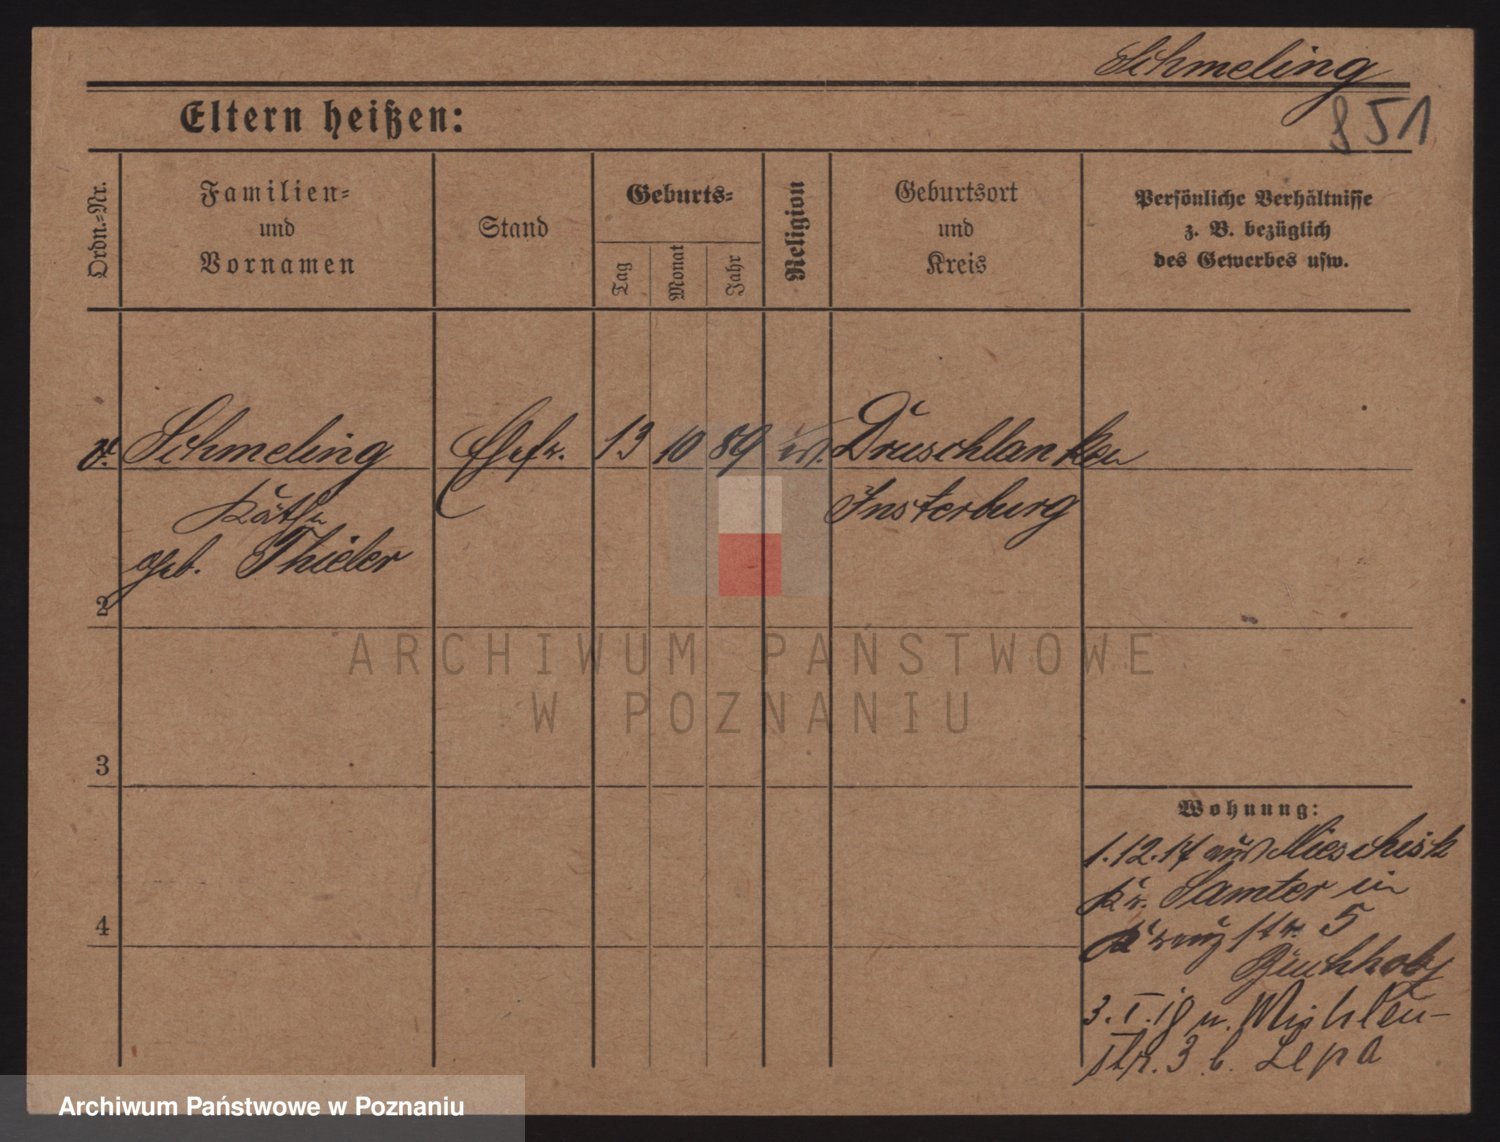 Schmeling
851
Eltern heißen:
Ordn.-Nr.
Familien-
und
Vornamen
Stand
Geburts-
Tag
Monat
Jahr
Religion
Geburtsort
und
Kreis
Persönliche Verhältnisse
z. B. bezüglich
des Gewerbes usw.
Schmeling Ehefr. 13 10 89 Druschlanken
Käthe Insterburg
geb. Thieler
2
ARCHIWUM PAŃSTWOWE
W POZNANIU
3
Wohnung:
1.12.17 aus
Kr. Samter in
4
Kreuzstr. 5
Buchholz
3.I.18 n. Mühlen-
str. 3 b. Lepa
Archiwum Państwowe w Poznaniu